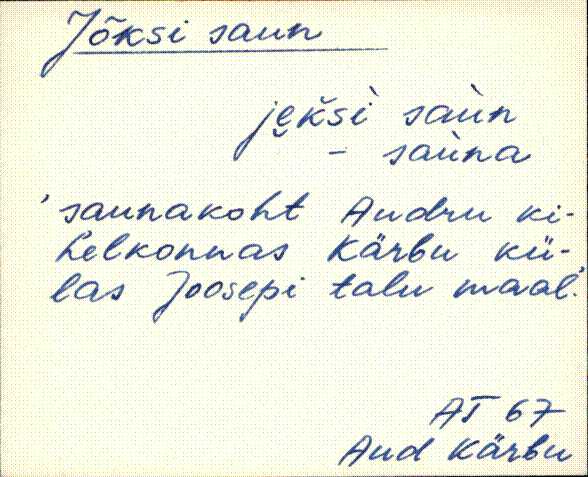 Jõksi saun
je̮kšì̬ saùn
– saùna
'saunakoht Audru ki-
helkonnas Kärbu kü-
las Joosepi talu maal.'
AT 67
Aud Kärbu